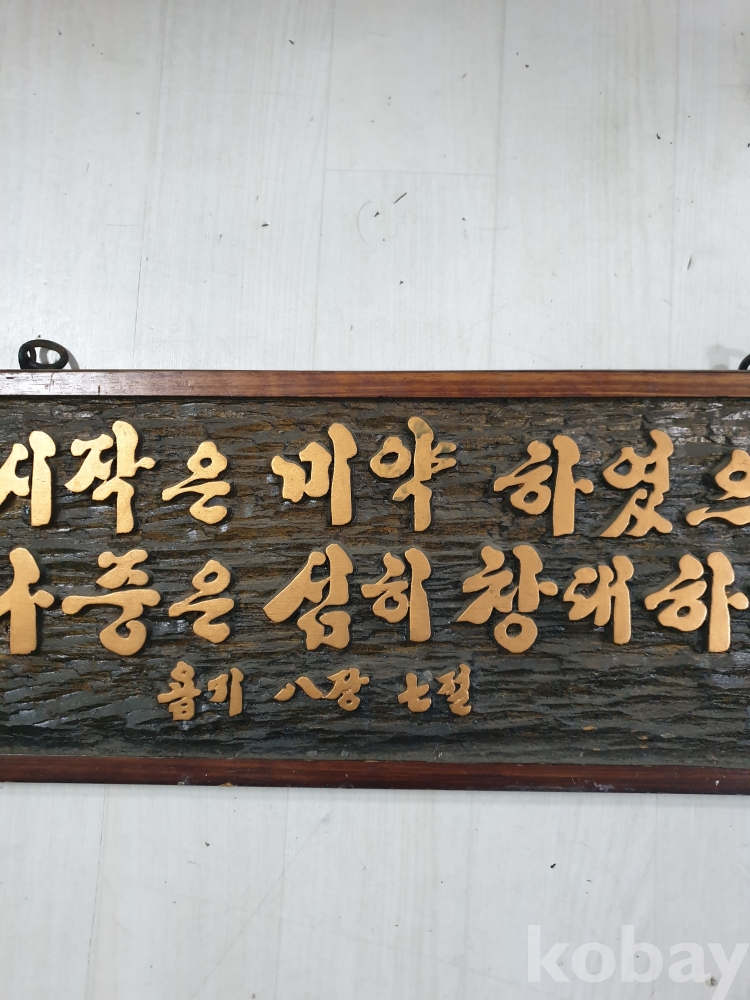 시작은 미약 하였으
나중은 심히 창대하
욥기 八장 七절
kobay